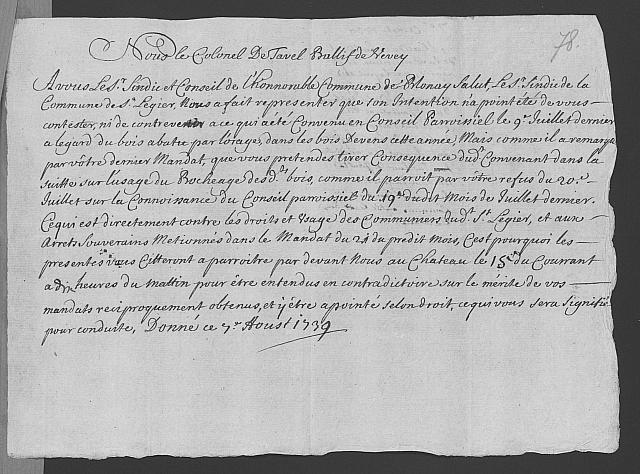 78.
Nous le Colonel De Tavel Ballif de Vevey
A vous Les Srs Sindic et Conseil de l'Honnorable Commune de Blonay Salut, Les Srs Sindic de la
Commune de St Legier, Nous a fait representer que son Intention na point été de vous
contester, ni de contrevenir a ce qui a été Convenu en Conseil Parroissiel le 9e Juillet dernier
a legard du bois abatu par l'orage, dans les bois Devens cette année, Mais comme il a remarqué
par vôtre dernier Mandat, que vous pretendes tirer Consequence dud. Convenant dans la
suitte sur l'usage du Bocheage desd. bois, comme il parroit par vôtre refus du 20e
Juillet sur la Connoisance du Conseil parroissiel du 19e dudit Mois de Juillet dernier.
Ce qui est directement contre les droits et Usage des Communiers dud. St Legier, et aux
Arrets Souverains Metionnés dans le Mandat du 21 du predit mois, C'est pourquoi les
presentes vous Citteront a parroitre par devant Nous au Chateau le 15e du Courrant
a dix heures du Mattin pour être entendus en contradictoire sur le mérite de vos
mandats reciproquement obtenus, et y être apointé selon droit, ce qui vous sera signifié
pour conduite, Donné ce 7e Aoust 1739